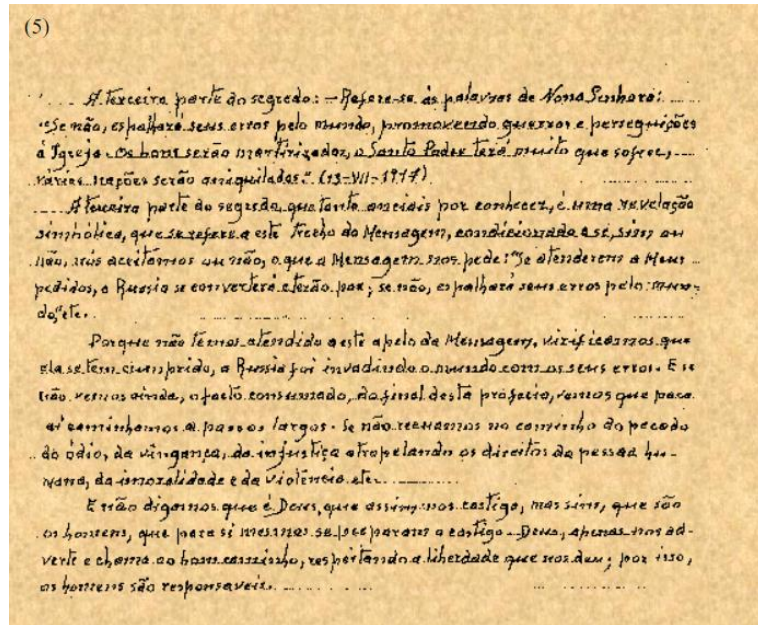 (5)
A terceira parte do segredo: – Refere-se ás palavras de Nossa Senhora:
"Se não, espalhará seus erros pelo mundo, promovendo guerras e perseguições
á Igreja. Os bons serão martirizados, o Santo Padre terá muito que sofrer,
várias nações serão aniquiladas." (13-VII-1917).
A terceira parte do segredo, que tanto anciais por conhecer, é uma revelação
simbólica, que se refere a este trecho da Mensagem, condicionada a se, sim ou
não, nós aceitamos ou não, o que a Mensagem nos pede: "Se atenderem a Meus
pedidos, a Russia se converterá e terão paz; se não, espalhará seus erros pelo mun-
do," etc.
Porque não temos atendido a este apelo da Mensagem, verificamos que
ela se tem cumprido, a Russia foi invadindo o mundo com os seus erros. E se
não vemos ainda, o facto consumado, do final desta profecia, vemos que para
aí caminhamos a passos largos. Se não recuamos no caminho do pecado
do ódio, da vingança, da injustiça atropelando os direitos da pessoa hu-
mana, da imoralidade e da violência etc.
E não digamos que é Deus, que assim nos castiga, mas sim, que são
os homens, que para si mesmos se preparam o castigo. Deus, apenas nos ad-
verte e chama ao bom caminho, respeitando a liberdade que nos deu; por isso,
os homens são responsaveis.